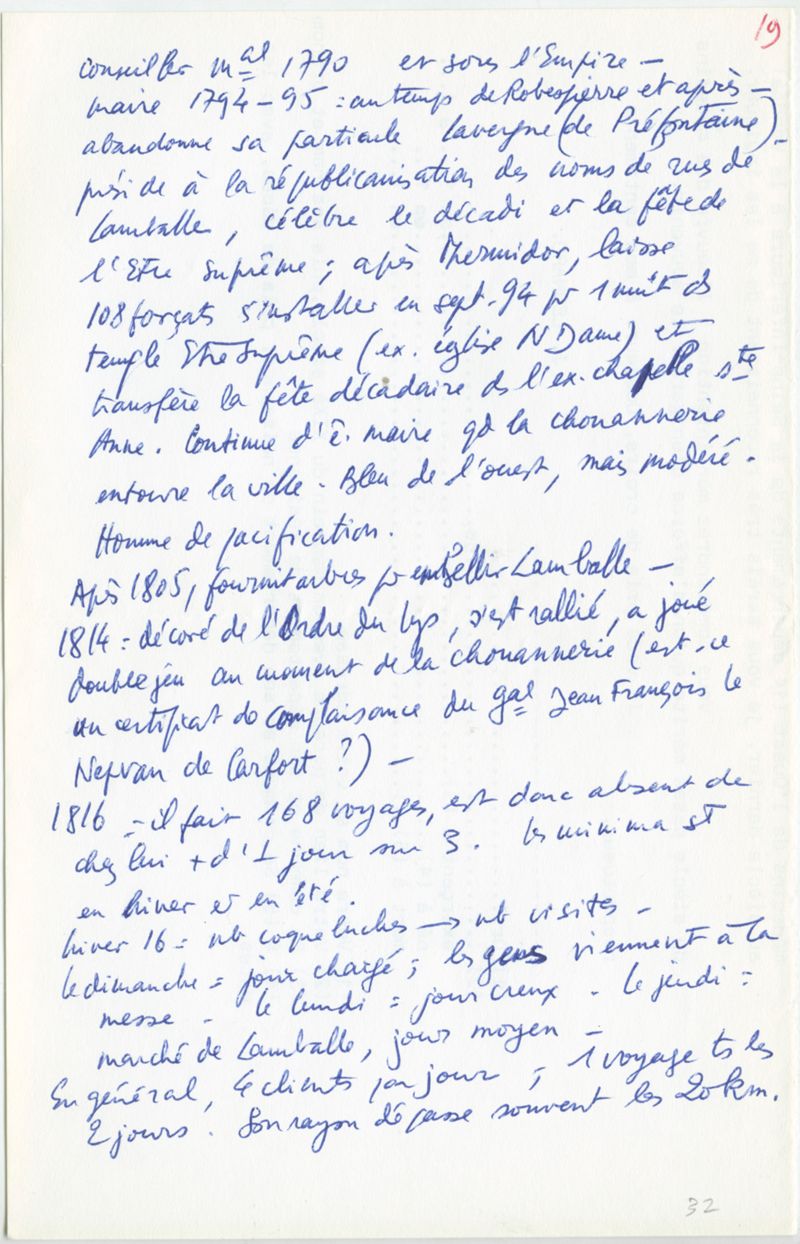 19
conseiller mal 1790 et sous l'Empire —
maire 1794-95 : au temps de Robespierre et après —
abandonne sa particule Lavergne (de Préfontaine) -
préside à la républicanisation des noms de rues de
Lamballe, célèbre le décadi et la fête de
l'Etre Suprême ; après Thermidor, laisse
108 forçats s'installer en sept. 94 pr 1 nuit ds
temple Etre Suprême (ex. église N Dame) et
transfère la fête décadaire ds l'ex. chapelle Ste
Anne. Continue d'ê. maire qd la chouannerie
entoure la ville - Bleu de l'ouest, mais modéré -
Homme de pacification.
Après 1805, fournit arbres pr embellir Lamballe —
1814 = décoré de l'Ordre du Lys, s'est rallié, a joué
double jeu au moment de la chouannerie (est-ce
un certificat de complaisance du gal Jean François le
Nepvan de Carfort ?) —
1816 = il fait 168 voyages, est donc absent de
chez lui + d'1 jour sur 3. les minima st
en hiver et en été.
hiver 16 = nb coqueluches → nb visites -
le dimanche = jour chargé ; les gens viennent à la
messe - le lundi = jour creux - le jeudi =
marché de Lamballe, jour moyen -
En général, 4 clients par jour ; 1 voyage ts les
2 jours. Son rayon dépasse souvent les 20 km.
32